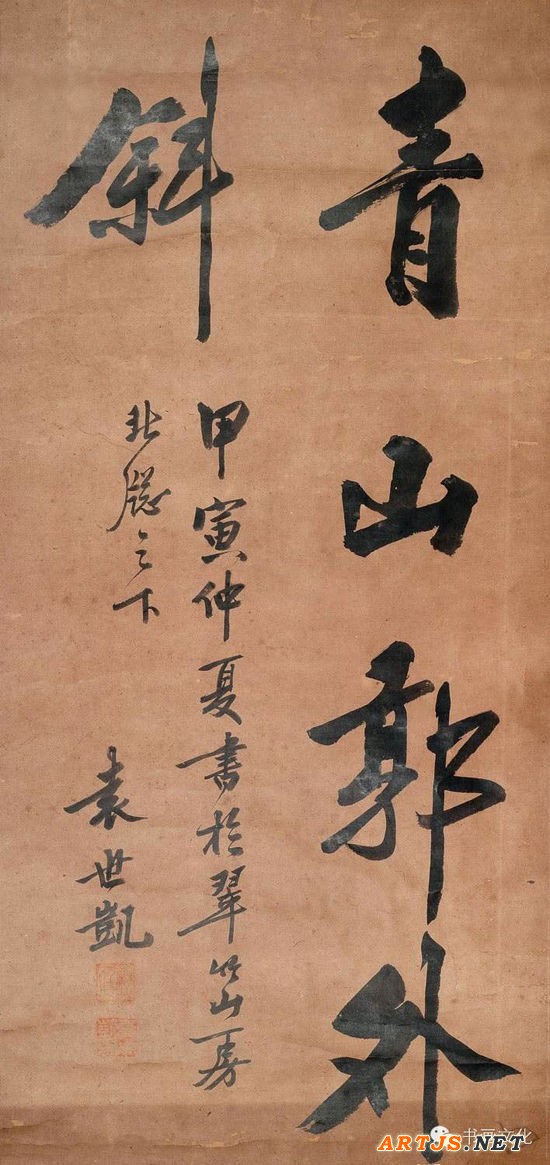 青山郭外
斜
甲寅仲夏書於翠竹山房
北牕之下
袁世凱
书画文化
ARTJS.NET